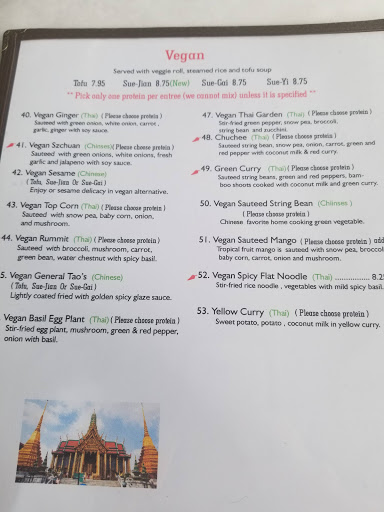 Vegan
Served with veggie roll, steamed rice and tofu soup
Tofu 7.95 Sue-Jian 8.75(New) Sue-Gai 8.75 Sue-Yi 8.75
** Pick only one protein per entree (we cannot mix) unless it is specified **
40. Vegan Ginger (Thai) ( Please choose protein )
Sauteed with green onion, white onion, carrot,
garlic, ginger with soy sauce.
41. Vegan Szchuan (Chinses)(Please choose protein )
Sauteed with green onions, white onions, fresh
garlic and jalapeno with soy sauce.
42. Vegan Sesame (Chinese)
( Tofu, Sue-Jian Or Sue-Gai )
Enjoy or sesame delicacy in vegan alternative.
43. Vegan Top Corn (Thai) ( Please choose protein )
Sauteed with snow pea, baby corn, onion,
and mushroom.
44. Vegan Rummit (Thai) ( Please choose protein )
Sauteed with broccoli, mushroom, carrot,
green bean, water chestnut with spicy basil.
5. Vegan General Tao's (Chinese)
( Tofu, Sue-Jian Or Sue-Gai )
Lightly coated fried with golden spicy glaze sauce.
Vegan Basil Egg Plant (Thai) ( Please choose protein )
Stir-fried egg plant, mushroom, green & red pepper,
onion with basil.
47. Vegan Thai Garden (Thai) ( Please choose protein )
Stir-fried green pepper, snow pea, broccoli,
string bean and zucchini.
48. Chuchee (Thai) ( Please choose protein )
Sauteed string bean, snow pea, onion, carrot, green and
red pepper with coconut milk & red curry.
49. Green Curry (Thai)( Please choose protein )
Sauteed string beans, green and red peppers, bam-
boo shoots cooked with coconut milk and green curry.
50. Vegan Sauteed String Bean (Chiinses )
( Please choose protein )
Chinese favorite home cooking green vegetable.
51. Vegan Sauteed Mango ( Please choose protein ) add
Tropical fruit mango is sauteed with snow pea, broccol
baby corn, carrot, onion and mushroom.
52. Vegan Spicy Flat Noodle (Thai) ................. 8.25
Stir-fried rice noodle , vegetables with mild spicy basil.
53. Yellow Curry (Thai) ( Please choose protein )
Sweet potato, potato , coconut milk in yellow curry.